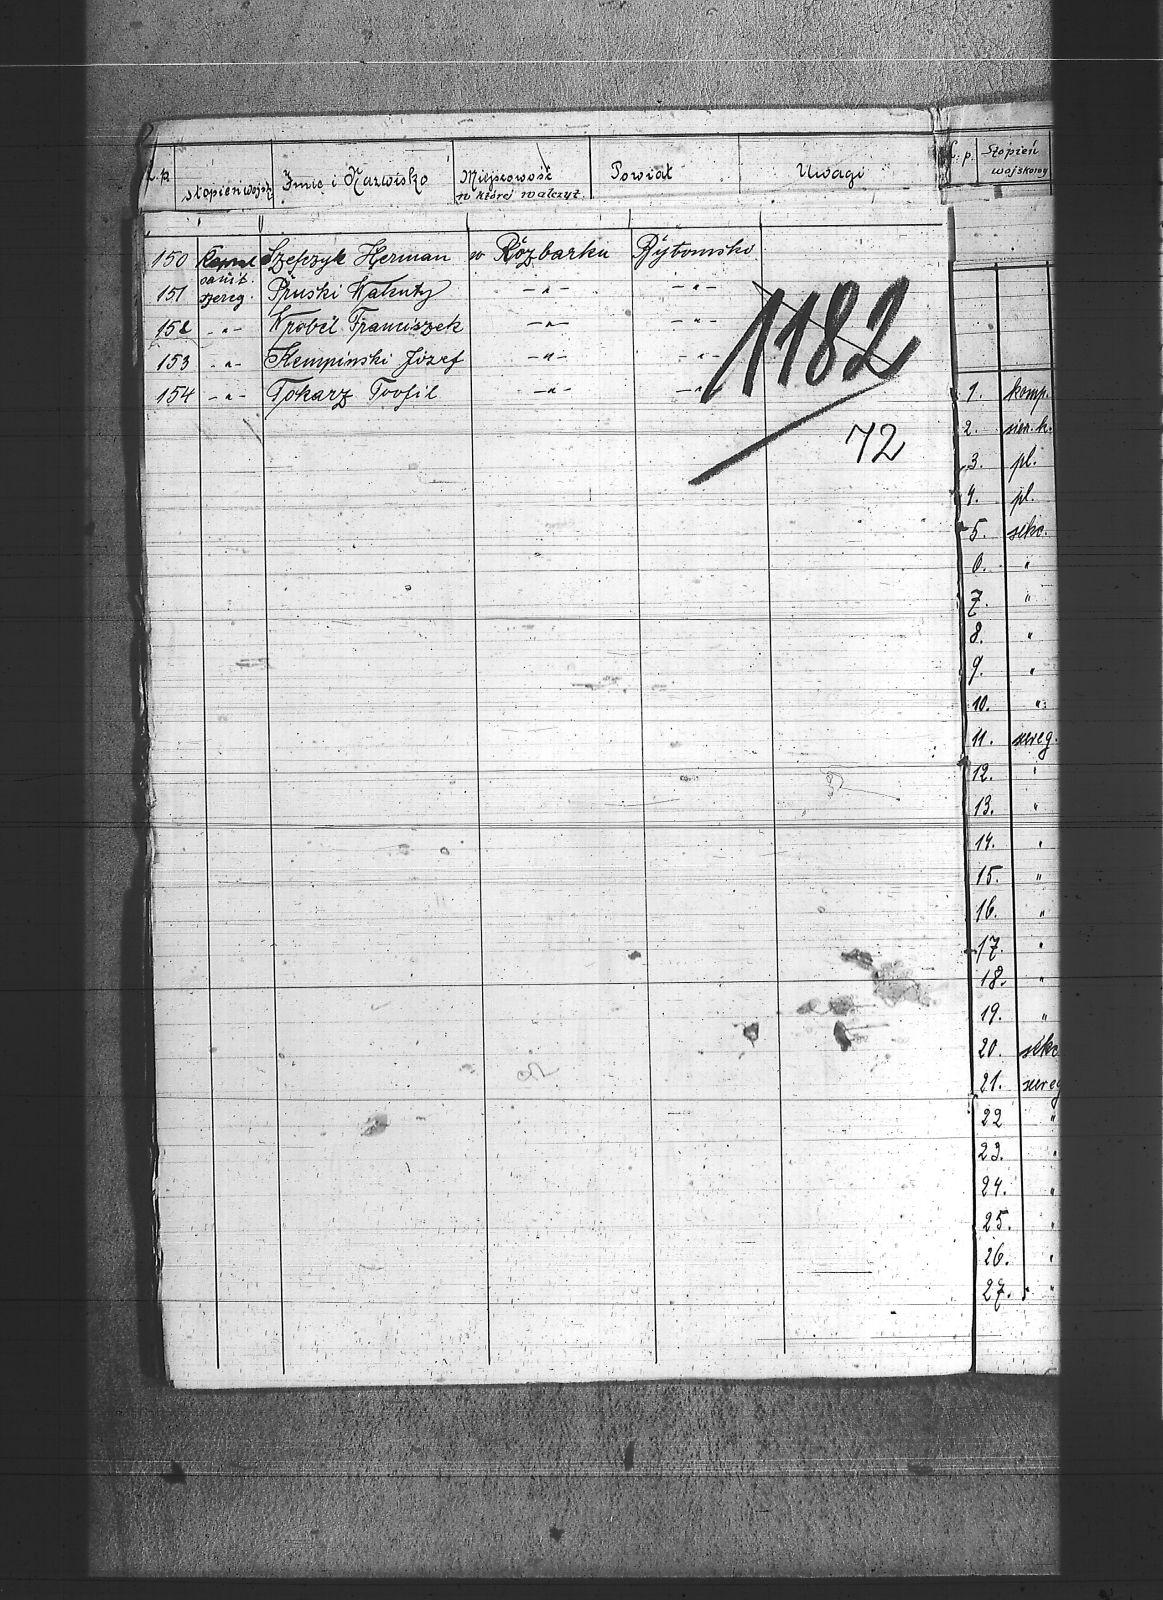 L.p. Stopień wojsk. Imię i Nazwisko Miejscowość w której walczył. Powiat Uwagi
150 Szefczyk Herman w Rozbarku Bytomsko
151 sanit. szereg. Pruski Walenty -„- -„-
152 -„- Wrobel Franciszek -„- -„-
153 -„- Kempinski Józef -„- -„-
154 -„- Tokarz Teofil -„- -„-
1182
72
L.p. Stopień wojskowy
1. komp.
2.
3. pl.
4. pl.
5. sekc.
6. "
7. "
8. "
9. "
10. "
11. szereg.
12. "
13. "
14. "
15. "
16. "
17. "
18. "
19. "
20. sekc
21. szereg
22 "
23. "
24. "
25. "
26. "
27. "